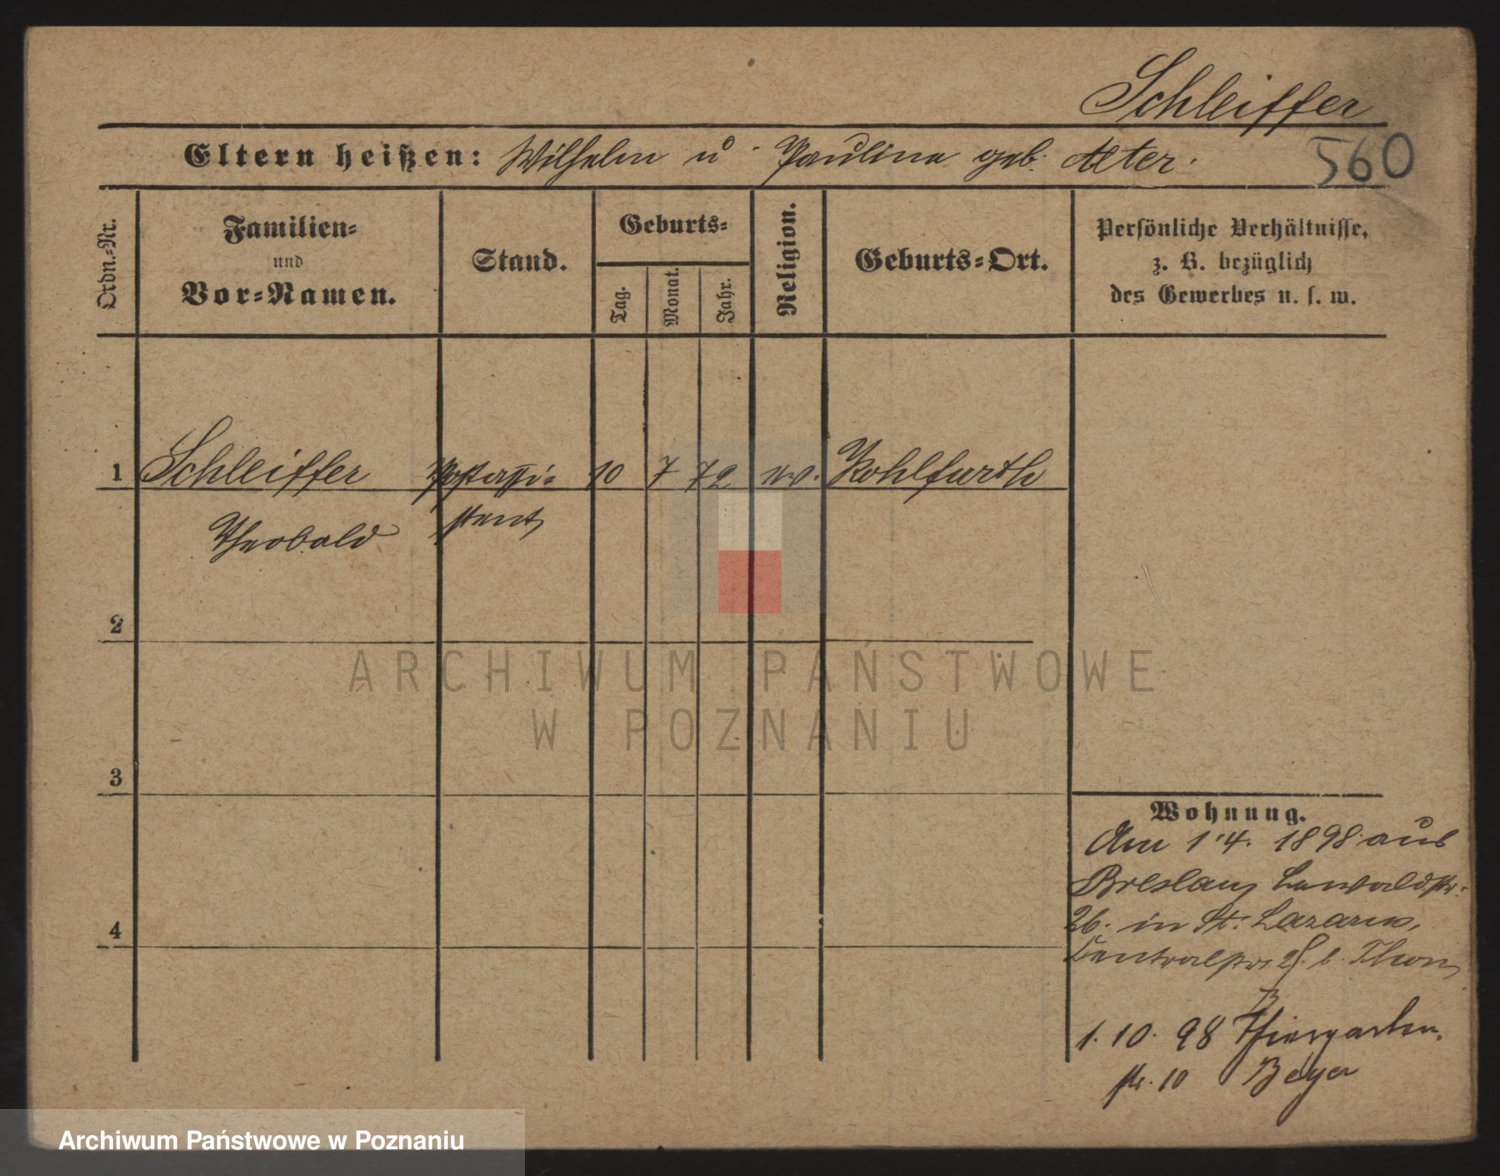 Schleiffer
Eltern heißen: Wilhelm u. Paulina geb. Alter.
560
Ordn.-Nr.
Familien-
und
Vor-Namen.
Stand.
Geburts-
Tag.
Monat.
Jahr.
Religion.
Geburts-Ort.
Persönliche Verhältnisse,
z. B. bezüglich
des Gewerbes u. s. w.
1 Schleiffer Postassi- 10 7 72 ev. Kohlfurth
Theobald stent
2
3
4
Wohnung.
Am 1.4. 1898 aus
Breslau, Lewaldstr.
26. in St. Lazarus,
Centralstr. b. Thom
1. 10. 98 Thiergarten
str. 10 Beyer
ARCHIWUM PAŃSTWOWE
W POZNANIU
Archiwum Państwowe w Poznaniu